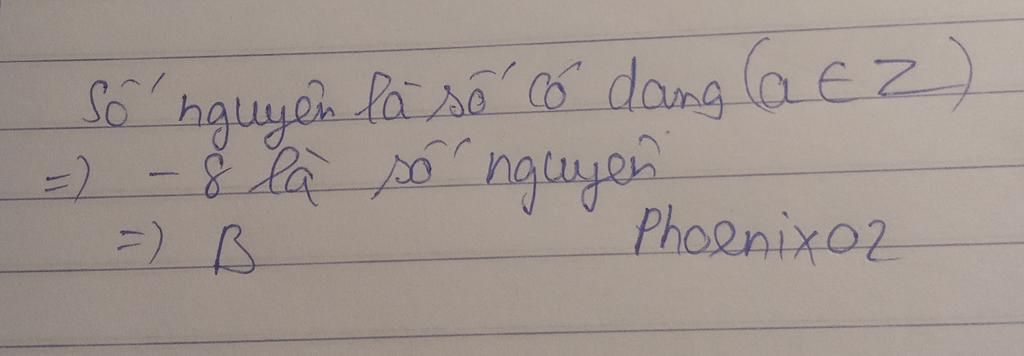 Số nguyên là số có dang (a ∈ Z)
=) - 8 là số nguyên
=) B
Phoenix02